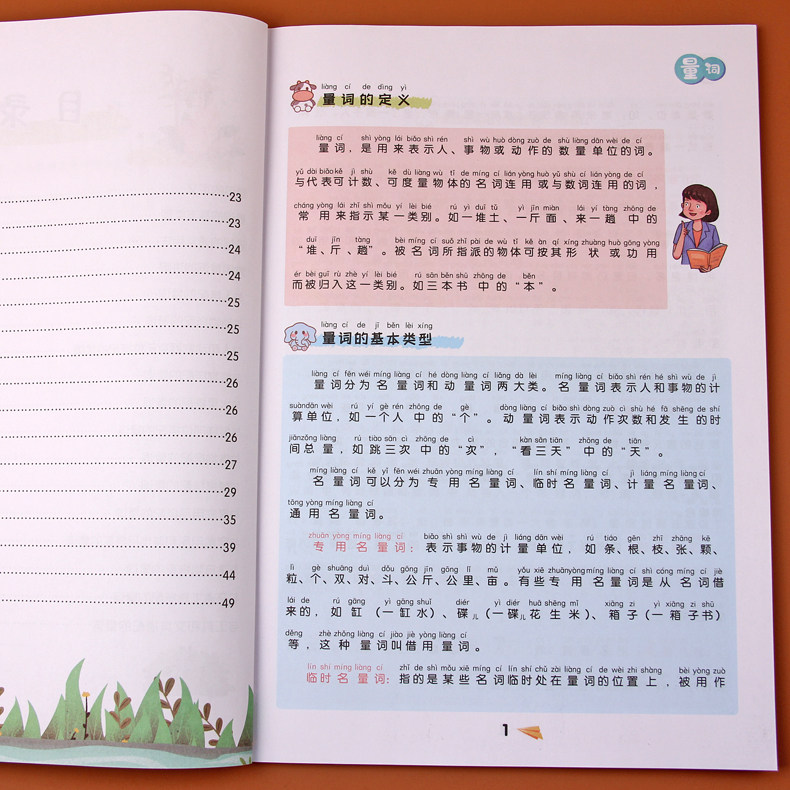 23
23
24
24
25
25
25
26
26
26
27
29
35
39
44
49
量词
liàng cí de dìng yì
量词的定义
liàng cí shì yòng lái biǎo shì rén shì wù huò dòng zuò de shù liàng dān wèi de cí
量词，是用来表示人、事物或动作的数量单位的词。
yǔ dài biǎo kě jì shù kě dù liàng wù tǐ de míng cí lián yòng huò yǔ shù cí lián yòng de cí
与代表可计数、可度量物体的名词连用或与数词连用的词，
cháng yòng lái zhǐ shì mǒu yí lèi bié rú yì duī tǔ yì jīn miàn lái yí tàng zhōng de
常用来指示某一类别。如一堆土、一斤面、来一趟中的
duī jīn tàng bèi míng cí suǒ zhǐ pài de wù tǐ kě àn qí xíng zhuàng huò gōng yòng
“堆、斤、趟”。被名词所指派的物体可按其形状或功用
ér bèi guī rù zhè yí lèi bié rú sān běn shū zhōng de běn
而被归入这一类别。如三本书中的“本”。
liàng cí de jī běn lèi xíng
量词的基本类型
liàng cí fēn wéi míng liàng cí hé dòng liàng cí liǎng dà lèi míng liàng cí biǎo shì rén hé shì wù de jì
量词分为名量词和动量词两大类。名量词表示人和事物的计
suàn dān wèi rú yí gè rén zhōng de gè dòng liàng cí biǎo shì dòng zuò cì shù hé fā shēng de shí
算单位，如一个人中的“个”。动量词表示动作次数和发生的时
jiān zǒng liàng rú tiào sān cì zhōng de cì kàn sān tiān zhōng de tiān
间总量，如跳三次中的“次”，“看三天”中的“天”。
míng liàng cí kě yǐ fēn wéi zhuān yòng míng liàng cí lín shí míng liàng cí jì liàng míng liàng cí
名量词可以分为专用名量词、临时名量词、计量名量词、
tōng yòng míng liàng cí
通用名量词。
zhuān yòng míng liàng cí biǎo shì shì wù de jì liàng dān wèi rú tiáo gēn zhī zhāng kē
专用名量词：表示事物的计量单位，如条、根、枝、张、颗、
lì gè shuāng duì dǒu gōng jīn gōng lǐ mǔ yǒu xiē zhuān yòng míng liàng cí shì cóng míng cí jiè
粒、个、双、对、斗、公斤、公里、亩。有些专用名量词是从名词借
lái de rú gāng yì gāng shuǐ diér yì diér huā shēng mǐ xiāng zi yì xiāng zi shū
来的，如缸（一缸水）、碟儿（一碟儿花生米）、箱子（一箱子书）
děng zhè zhǒng liàng cí jiào jiè yòng liàng cí
等，这种量词叫借用量词。
lín shí míng liàng cí zhǐ de shì mǒu xiē míng cí lín shí chǔ zài liàng cí de wèi zhi shàng bèi yòng zuò
临时名量词：指的是某些名词临时处在量词的位置上，被用作
1